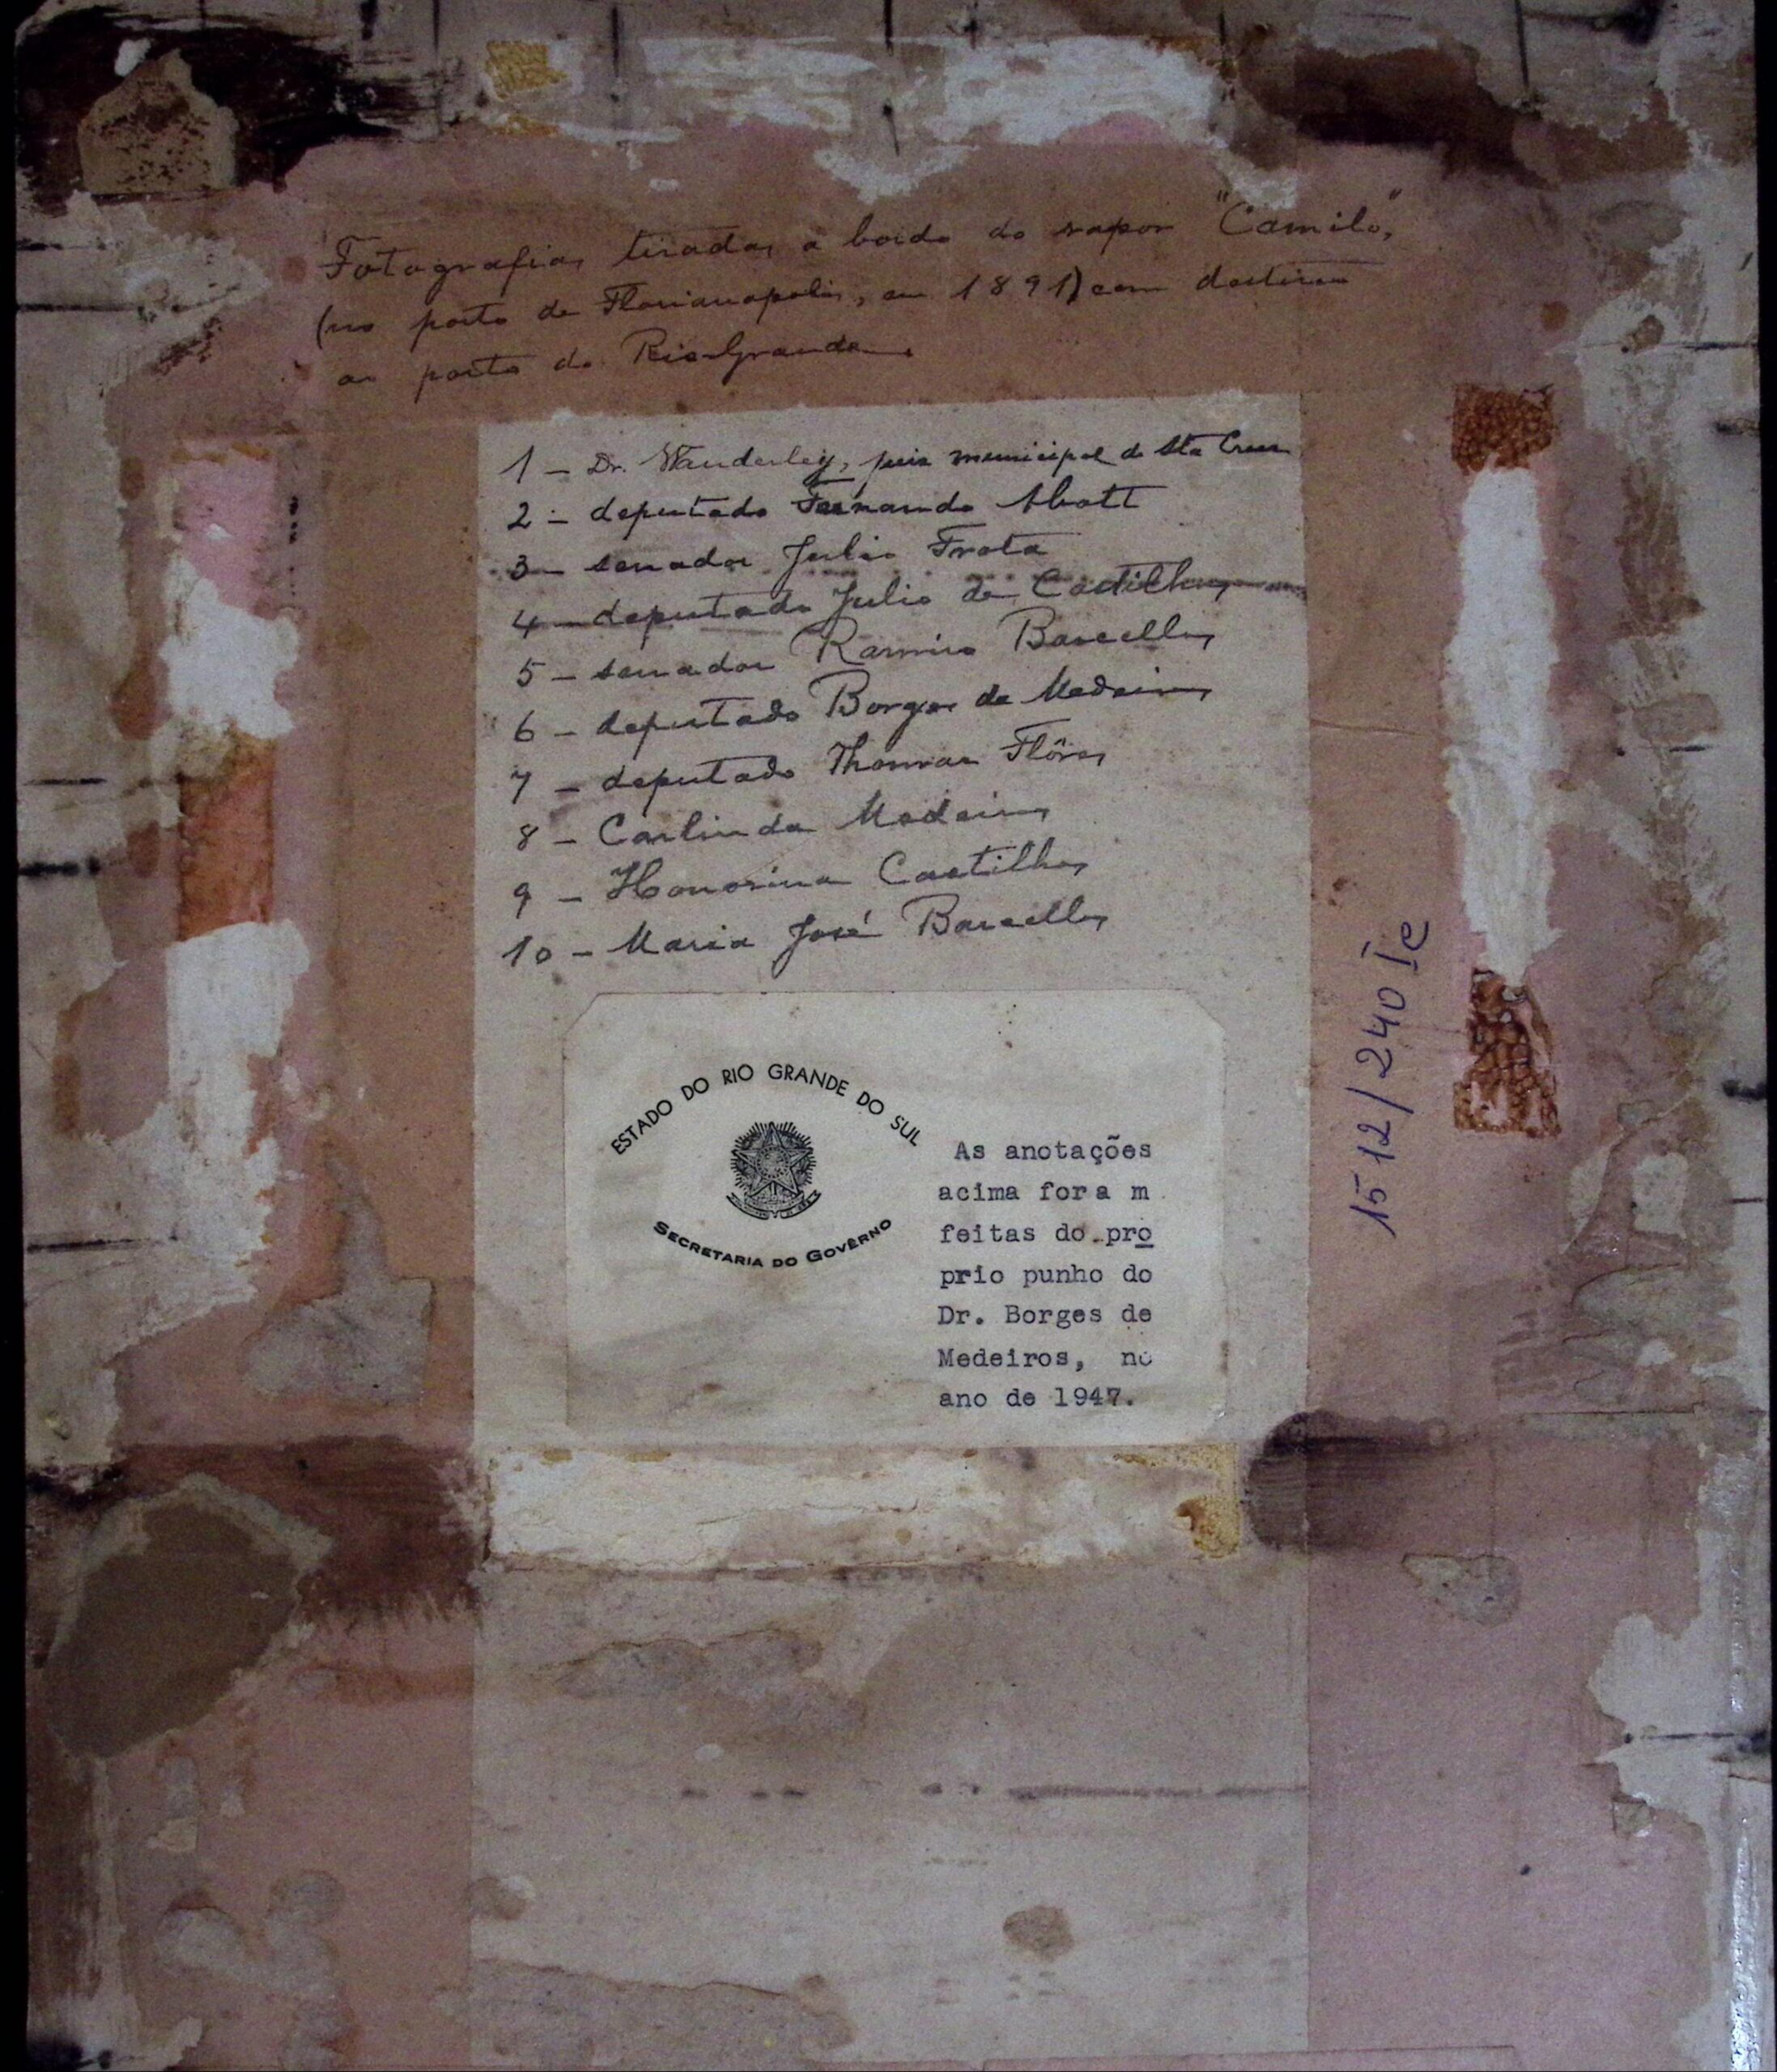 Fotografias tiradas a bordo do vapor "Camilo",
(no porto de Florianopolis, em 1891) com destino
ao porto do Rio Grande.
1 - Dr. Wanderley, juiz municipal de Sta Cruz
2 - deputado Fernando Abott
3 - senador Julio Frota
4 - deputado Julio de Castilhos
5 - senador Ramiro Barcellos
6 - deputado Borges de Medeiros
7 - deputado Thomaz Flôres
8 - Carlinda Medeiros
9 - Honorina Castilhos
10 - Maria José Barcellos
ESTADO DO RIO GRANDE DO SUL
SECRETARIA DO GOVÊRNO
As anotações
acima foram
feitas do pro
prio punho do
Dr. Borges de
Medeiros, no
ano de 1947.
1512/240 Ie